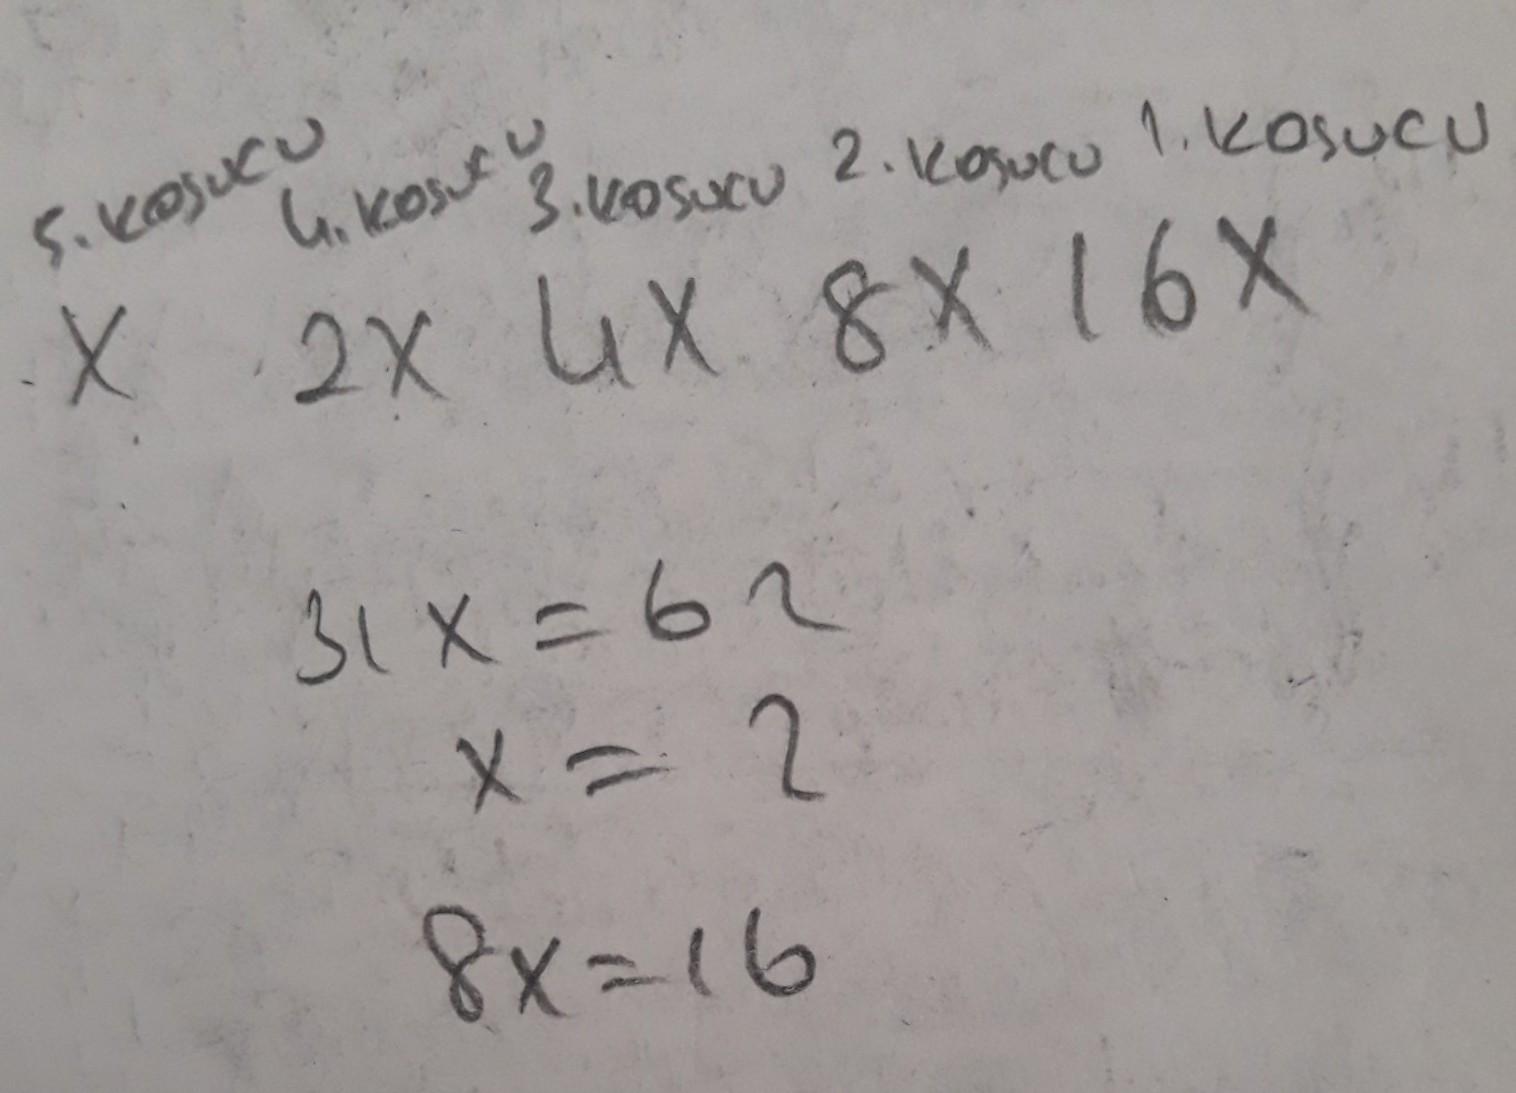 5.kosucu 4.kosucu 3.kosucu 2.kosucu 1.kosucu
x 2x 4x 8x 16x
31x=62
x=2
8x=16